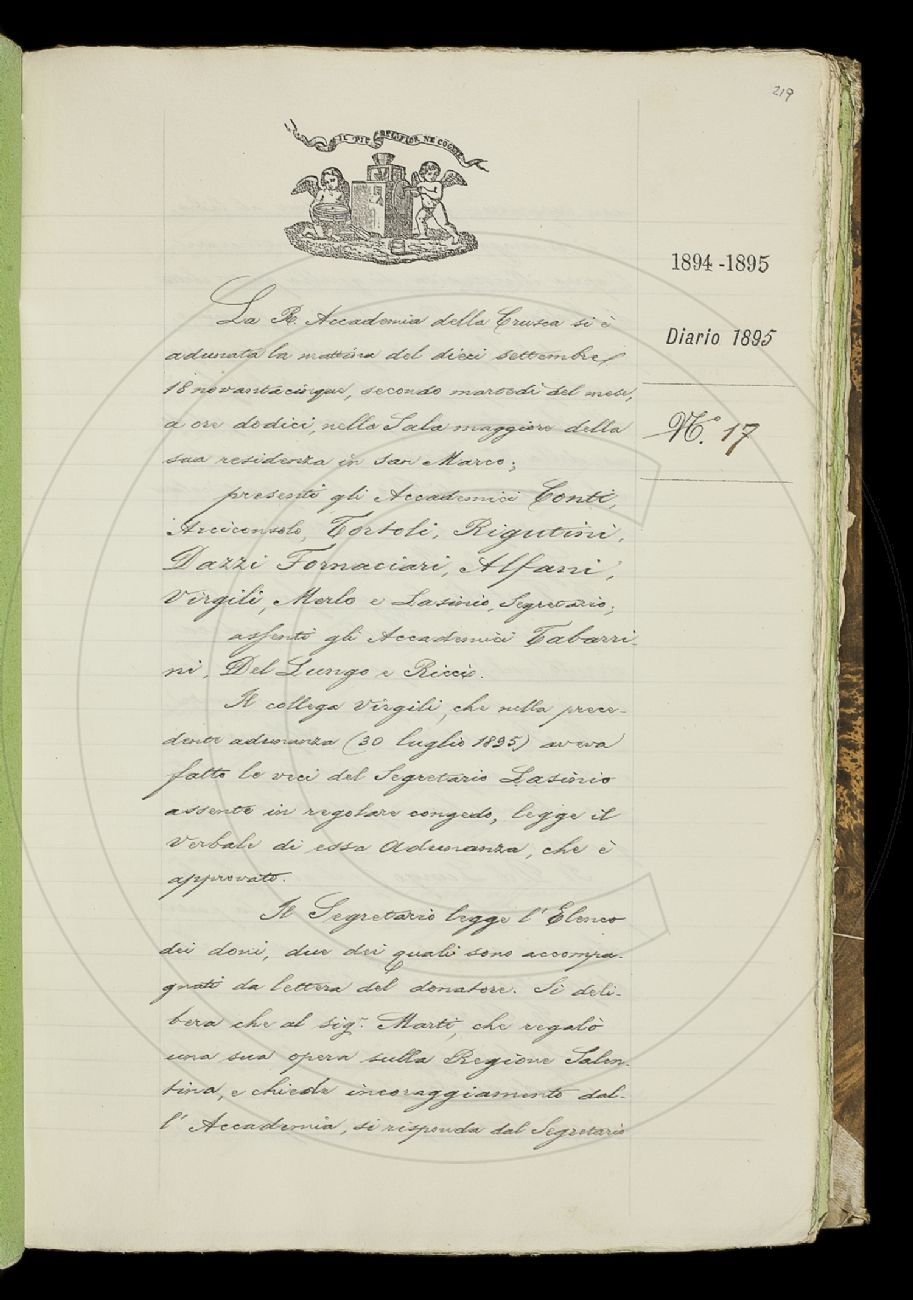 219
IL PIÙ BEL FIOR NE COGLIE
1894-1895
Diario 1895
N.° 17
La R. Accademia della Crusca si è
adunata la mattina del dieci settembre
18novantacinque, secondo martedì del mese,
a ore dodici, nella Sala maggiore della
sua residenza in San Marco;
presenti gli Accademici Conti,
Arciconsolo, Tortoli, Rigutini,
Dazzi Fornaciari, Alfani,
Virgili, Merlo e Lasinio Segretario;
assenti gli Accademici Tabarri-
ni, Del Lungo e Ricci.
Il collega Virgili, che nella prece-
dente adunanza (30 luglio 1895) aveva
fatto le veci del Segretario Lasinio
assente in regolare congedo, legge il
Verbale di essa Adunanza, che è
approvato.
Il Segretario legge l'Elenco
dei doni, due dei quali sono accompa-
gnati da lettera del donatore. Si deli-
bera che al sig.r Marti, che regalò
una sua opera sulla Regione Salen-
tina, e chiede incoraggiamento dal-
l'Accademia, si risponda dal Segretario